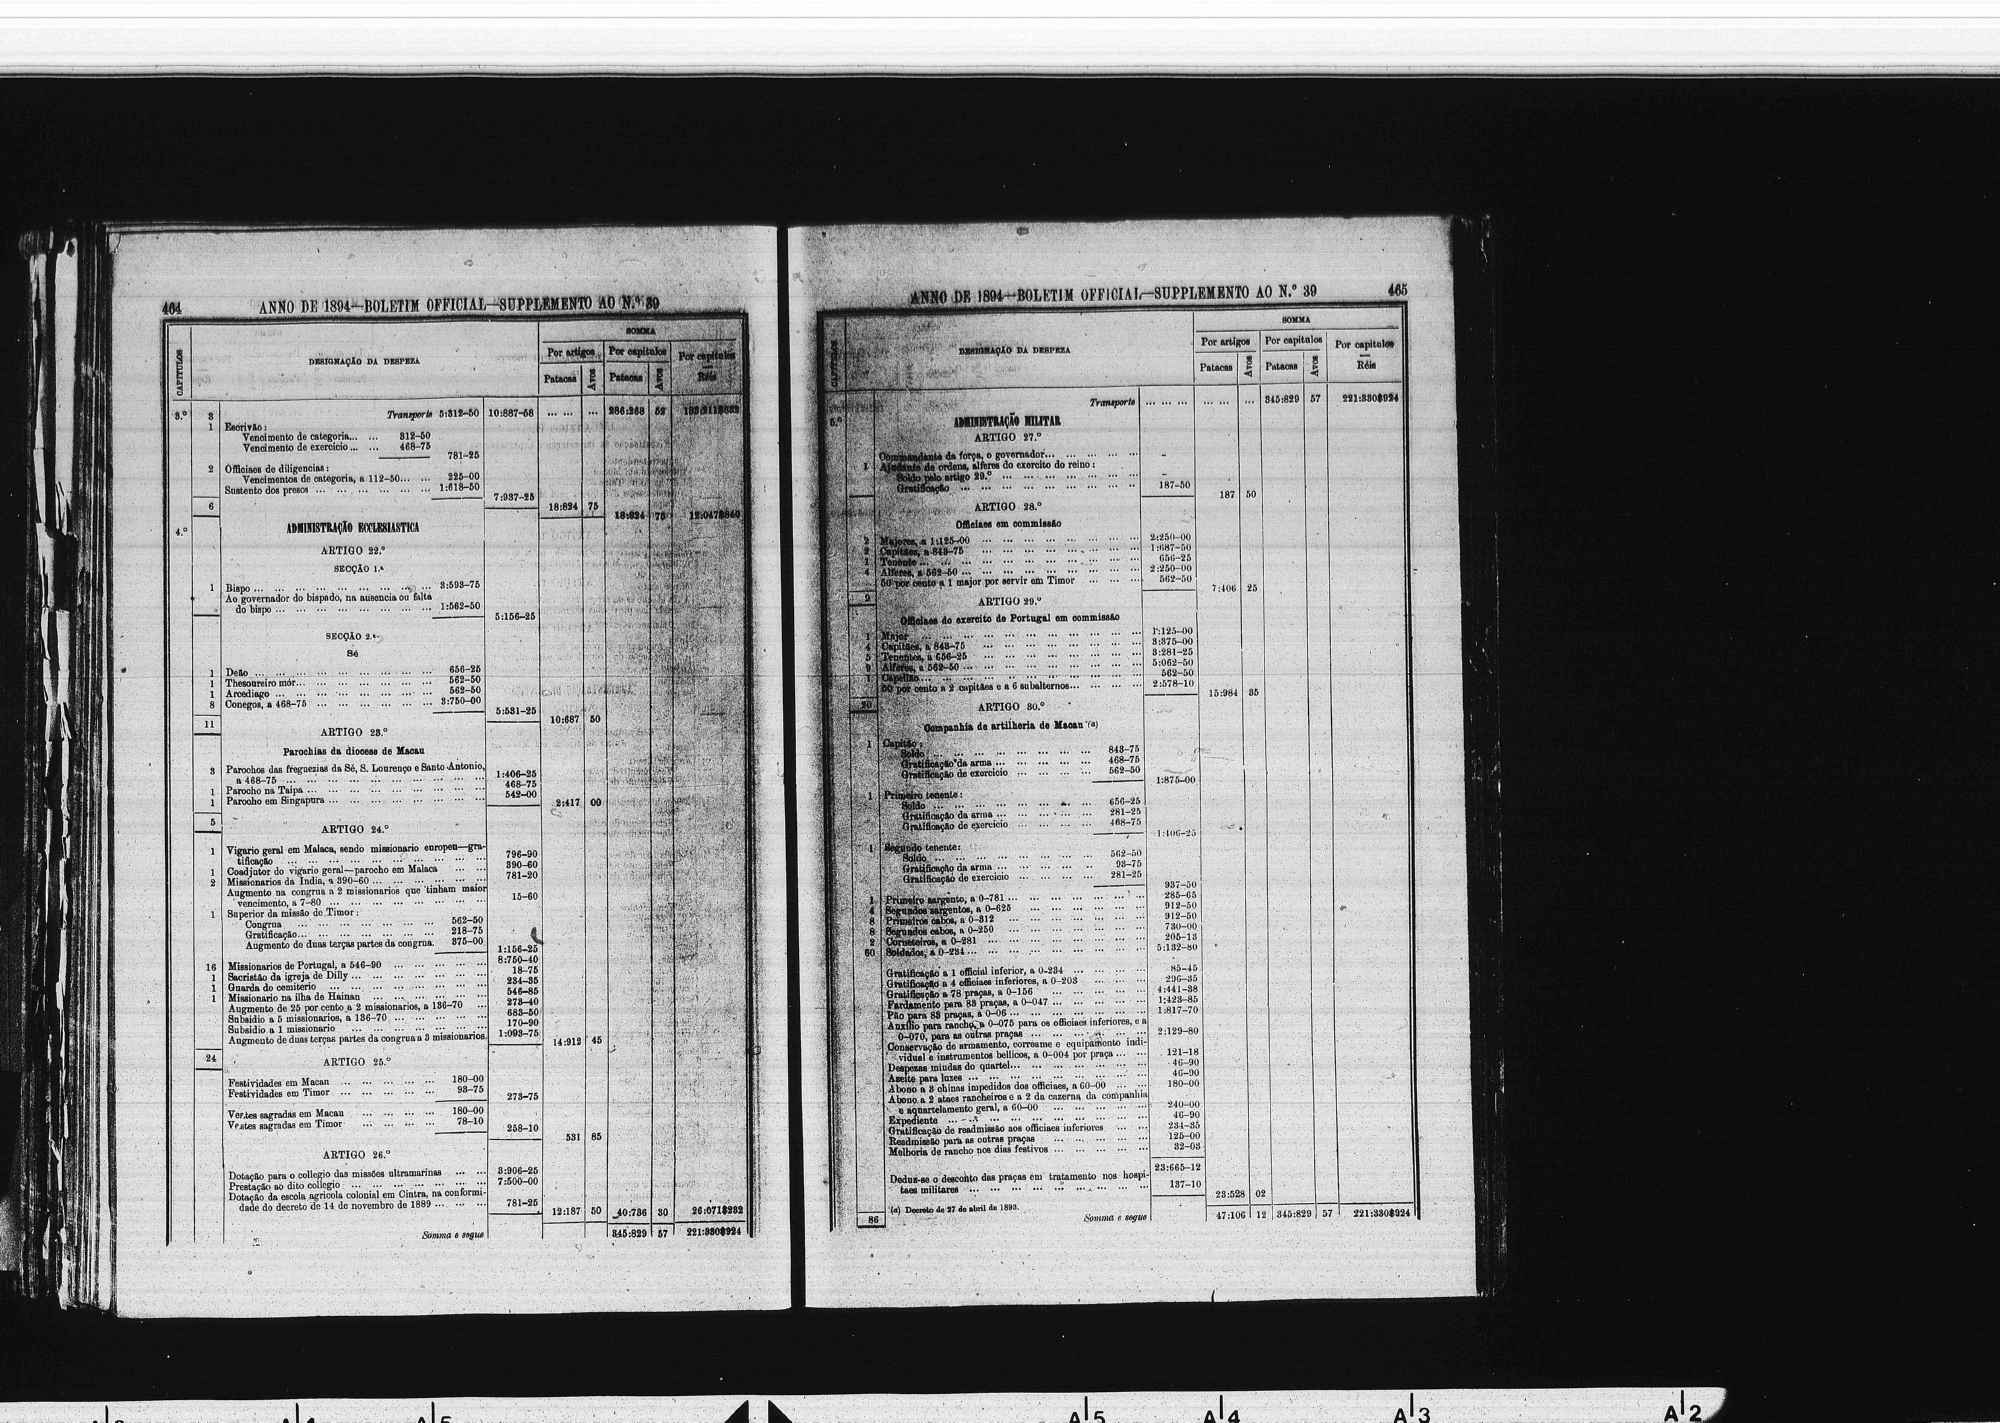 464 ANNO DE 1894—BOLETIM OFFICIAL—SUPPLEMENTO AO N.º 39
CAPITULOS
DESIGNAÇÃO DA DESPEZA
SOMMA
Por artigos Por capitulos Por capitulos
Patacas Avos Patacas Avos Réis
3.º 3 Transporte 5:312-50 10:887-58 ... ... ... 286:268 52
1 Escrivão:
Vencimento de categoria... ... 312-50
Vencimento de exercicio ... ... 468-75
781-25
2 Officiaes de diligencias:
Vencimentos de categoria, a 112-50... ... 225-00
Sustento dos presos ... ... ... ... ... ... 1:618-50
7:937-25
6 18:824 75 18:824 75
4.º ADMINISTRAÇÃO ECCLESIASTICA
ARTIGO 22.º
SECÇÃO 1.ª
1 Bispo ... ... ... ... ... ... ... ... ... 3:593-75
Ao governador do bispado, na ausencia ou falta
do bispo ... ... ... ... ... ... ... ... 1:562-50
5:156-25
SECÇÃO 2.ª
Sé
1 Deão ... ... ... ... ... ... ... ... ... 656-25
1 Thesoureiro mór... ... ... ... ... ... ... 562-50
1 Arcediago ... ... ... ... ... ... ... ... 562-50
8 Conegos, a 468-75 ... ... ... ... ... ... 3:750-00
5:531-25
11 10:687 50
ARTIGO 23.º
Parochias da diocese de Macau
3 Parochos das freguezias da Sé, S. Lourenço e Santo Antonio,
a 468-75 ... ... ... ... ... ... ... ... ... ... 1:406-25
1 Parocho na Taipa ... ... ... ... ... ... ... ... ... 468-75
1 Parocho em Singapura ... ... ... ... ... ... ... ... 542-00
2:417 00
5
ARTIGO 24.º
1 Vigario geral em Malaca, sendo missionario europeu—gra-
tificação ... ... ... ... ... ... ... ... ... ... 796-90
1 Coadjutor do vigario geral—parocho em Malaca ... ... 390-60
2 Missionarios da India, a 390-60 ... ... ... ... ... ... 781-20
Augmento na congrua a 2 missionarios que tinham maior
vencimento, a 7-80 ... ... ... ... ... ... ... ... 15-60
1 Superior da missão de Timor:
Congrua ... ... ... ... ... ... ... 562-50
Gratificação... ... ... ... ... ... ... 218-75
Augmento de duas terças partes da congrua. 375-00
1:156-25
16 Missionarios de Portugal, a 546-90 ... ... ... ... ... 8:750-40
1 Sacristão da igreja de Dilly ... ... ... ... ... ... ... 18-75
1 Guarda do cemiterio ... ... ... ... ... ... ... ... 234-35
1 Missionario na ilha de Hainan ... ... ... ... ... ... 546-85
Augmento de 25 por cento a 2 missionarios, a 136-70 ... 273-40
Subsidio a 5 missionarios, a 136-70 ... ... ... ... ... 683-50
Subsidio a 1 missionario ... ... ... ... ... ... ... 170-90
Augmento de duas terças partes da congrua a 3 missionarios. 1:093-75
14:912 45
24
ARTIGO 25.º
Festividades em Macau ... ... ... ... ... 180-00
Festividades em Timor ... ... ... ... ... 93-75
273-75
Vestes sagradas em Macau ... ... ... ... 180-00
Vestes sagradas em Timor ... ... ... ... 78-10
258-10
531 85
ARTIGO 26.º
Dotação para o collegio das missões ultramarinas ... ... 3:906-25
Prestação ao dito collegio ... ... ... ... ... ... ... 7:500-00
Dotação da escola agricola colonial em Cintra, na conformi-
dade do decreto de 14 de novembro de 1889 ... ... ... 781-25
12:187 50 40:736 30 26:071$232
Somma e segue 345:829 57 221:330$924
ANNO DE 1894—BOLETIM OFFICIAL—SUPPLEMENTO AO N.º 39 465
CAPITULOS
DESIGNAÇÃO DA DESPEZA
SOMMA
Por artigos Por capitulos Por capitulos
Patacas Avos Patacas Avos Réis
Transporte ... ... ... ... ... ... 345:829 57 221:330$924
5.º ADMINISTRAÇÃO MILITAR
ARTIGO 27.º
Commandante da força, o governador... ... ... ... ... –
1 Ajudante de ordens, alferes do exercito do reino:
Soldo pelo artigo 29.º ... ... ... ... ... ... ... –
Gratificação ... ... ... ... ... ... ... ... ... 187-50
187 50
ARTIGO 28.º
Officiaes em commissão
2 Majores, a 1:125-00 ... ... ... ... ... ... ... ... 2:250-00
2 Capitães, a 843-75 ... ... ... ... ... ... ... ... 1:687-50
1 Tenente ... ... ... ... ... ... ... ... ... ... 656-25
4 Alferes, a 562-50 ... ... ... ... ... ... ... ... ... 2:250-00
50 por cento a 1 major por servir em Timor ... ... ... 562-50
7:406 25
9
ARTIGO 29.º
Officiaes do exercito de Portugal em commissão
1 Major ... ... ... ... ... ... ... ... ... ... 1:125-00
4 Capitães, a 843-75 ... ... ... ... ... ... ... ... 3:375-00
5 Tenentes, a 656-25 ... ... ... ... ... ... ... ... 3:281-25
9 Alferes, a 562-50 ... ... ... ... ... ... ... ... ... 5:062-50
1 Capellão ... ... ... ... ... ... ... ... ... ... 562-50
50 por cento a 2 capitães e a 6 subalternos... ... ... ... 2:578-10
15:984 35
20
ARTIGO 30.º
Companhia de artilheria de Macau (a)
1 Capitão:
Soldo ... ... ... ... ... ... ... ... 843-75
Gratificação da arma ... ... ... ... ... 468-75
Gratificação de exercicio ... ... ... ... 562-50
1:875-00
1 Primeiro tenente:
Soldo ... ... ... ... ... ... ... ... 656-25
Gratificação da arma ... ... ... ... ... 281-25
Gratificação de exercicio ... ... ... ... 468-75
1:406-25
1 Segundo tenente:
Soldo ... ... ... ... ... ... ... ... 562-50
Gratificação da arma ... ... ... ... ... 93-75
Gratificação de exercicio ... ... ... ... 281-25
937-50
1 Primeiro sargento, a 0-781 ... ... ... ... ... ... ... 285-65
4 Segundos sargentos, a 0-625 ... ... ... ... ... ... 912-50
8 Primeiros cabos, a 0-312 ... ... ... ... ... ... ... 912-50
8 Segundos cabos, a 0-250 ... ... ... ... ... ... ... 730-00
2 Corneteiros, a 0-281 ... ... ... ... ... ... ... ... 205-13
60 Soldados, a 0-234 ... ... ... ... ... ... ... ... ... 5:132-80
Gratificação a 1 official inferior, a 0-234 ... ... ... ... 85-45
Gratificação a 4 officiaes inferiores, a 0-203 ... ... ... 296-35
Gratificação a 78 praças, a 0-156 ... ... ... ... ... 4:441-38
Fardamento para 83 praças, a 0-047 ... ... ... ... ... 1:423-85
Pão para 83 praças, a 0-06 ... ... ... ... ... ... ... 1:817-70
Auxilio para rancho, a 0-075 para os officiaes inferiores, e a
0-070, para as outras praças ... ... ... ... ... ... 2:129-80
Conservação de armamento, correame e equipamento indi-
vidual e instrumentos bellicos, a 0-004 por praça ... ... 121-18
Despezas miudas do quartel... ... ... ... ... ... ... 46-90
Azeite para luzes ... ... ... ... ... ... ... ... ... 46-90
Abono a 3 chinas impedidos dos officiaes, a 60-00 ... ... 180-00
Abono a 2 ataes rancheiros e a 2 da cazerna da companhia
e aquartelamento geral, a 60-00 ... ... ... ... ... 240-00
Expediente ... ... ... ... ... ... ... ... ... ... 46-90
Gratificação de readmissão aos officiaes inferiores ... ... 234-35
Readmissão para as outras praças ... ... ... ... ... 125-00
Melhoria de rancho nos dias festivos ... ... ... ... ... 32-03
23:665-12
Deduz-se o desconto das praças em tratamento nos hospi-
taes militares ... ... ... ... ... ... ... ... ... 137-10
23:528 02
(a) Decreto de 27 de abril de 1893.
86 Somma e segue 47:106 12 345:829 57 221:330$924
A 5 A 4 A 3 A 2